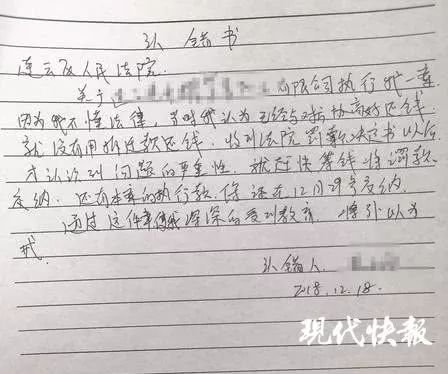 认错书
连云区人民法院:
关于 有限公司执行我一案
因为我不懂法律,当时我认为已经与对方协商好还钱
就没有用拆迁款还钱。收到法院罚款决定书以后
才认识到问题的严重性,就赶快筹钱将罚款
交纳。还有本案的执行款,保证在12月29号交纳。
通过这件事情我深深的受到教育,将引以为
戒。
认错人
2018.12.18.
现代快报